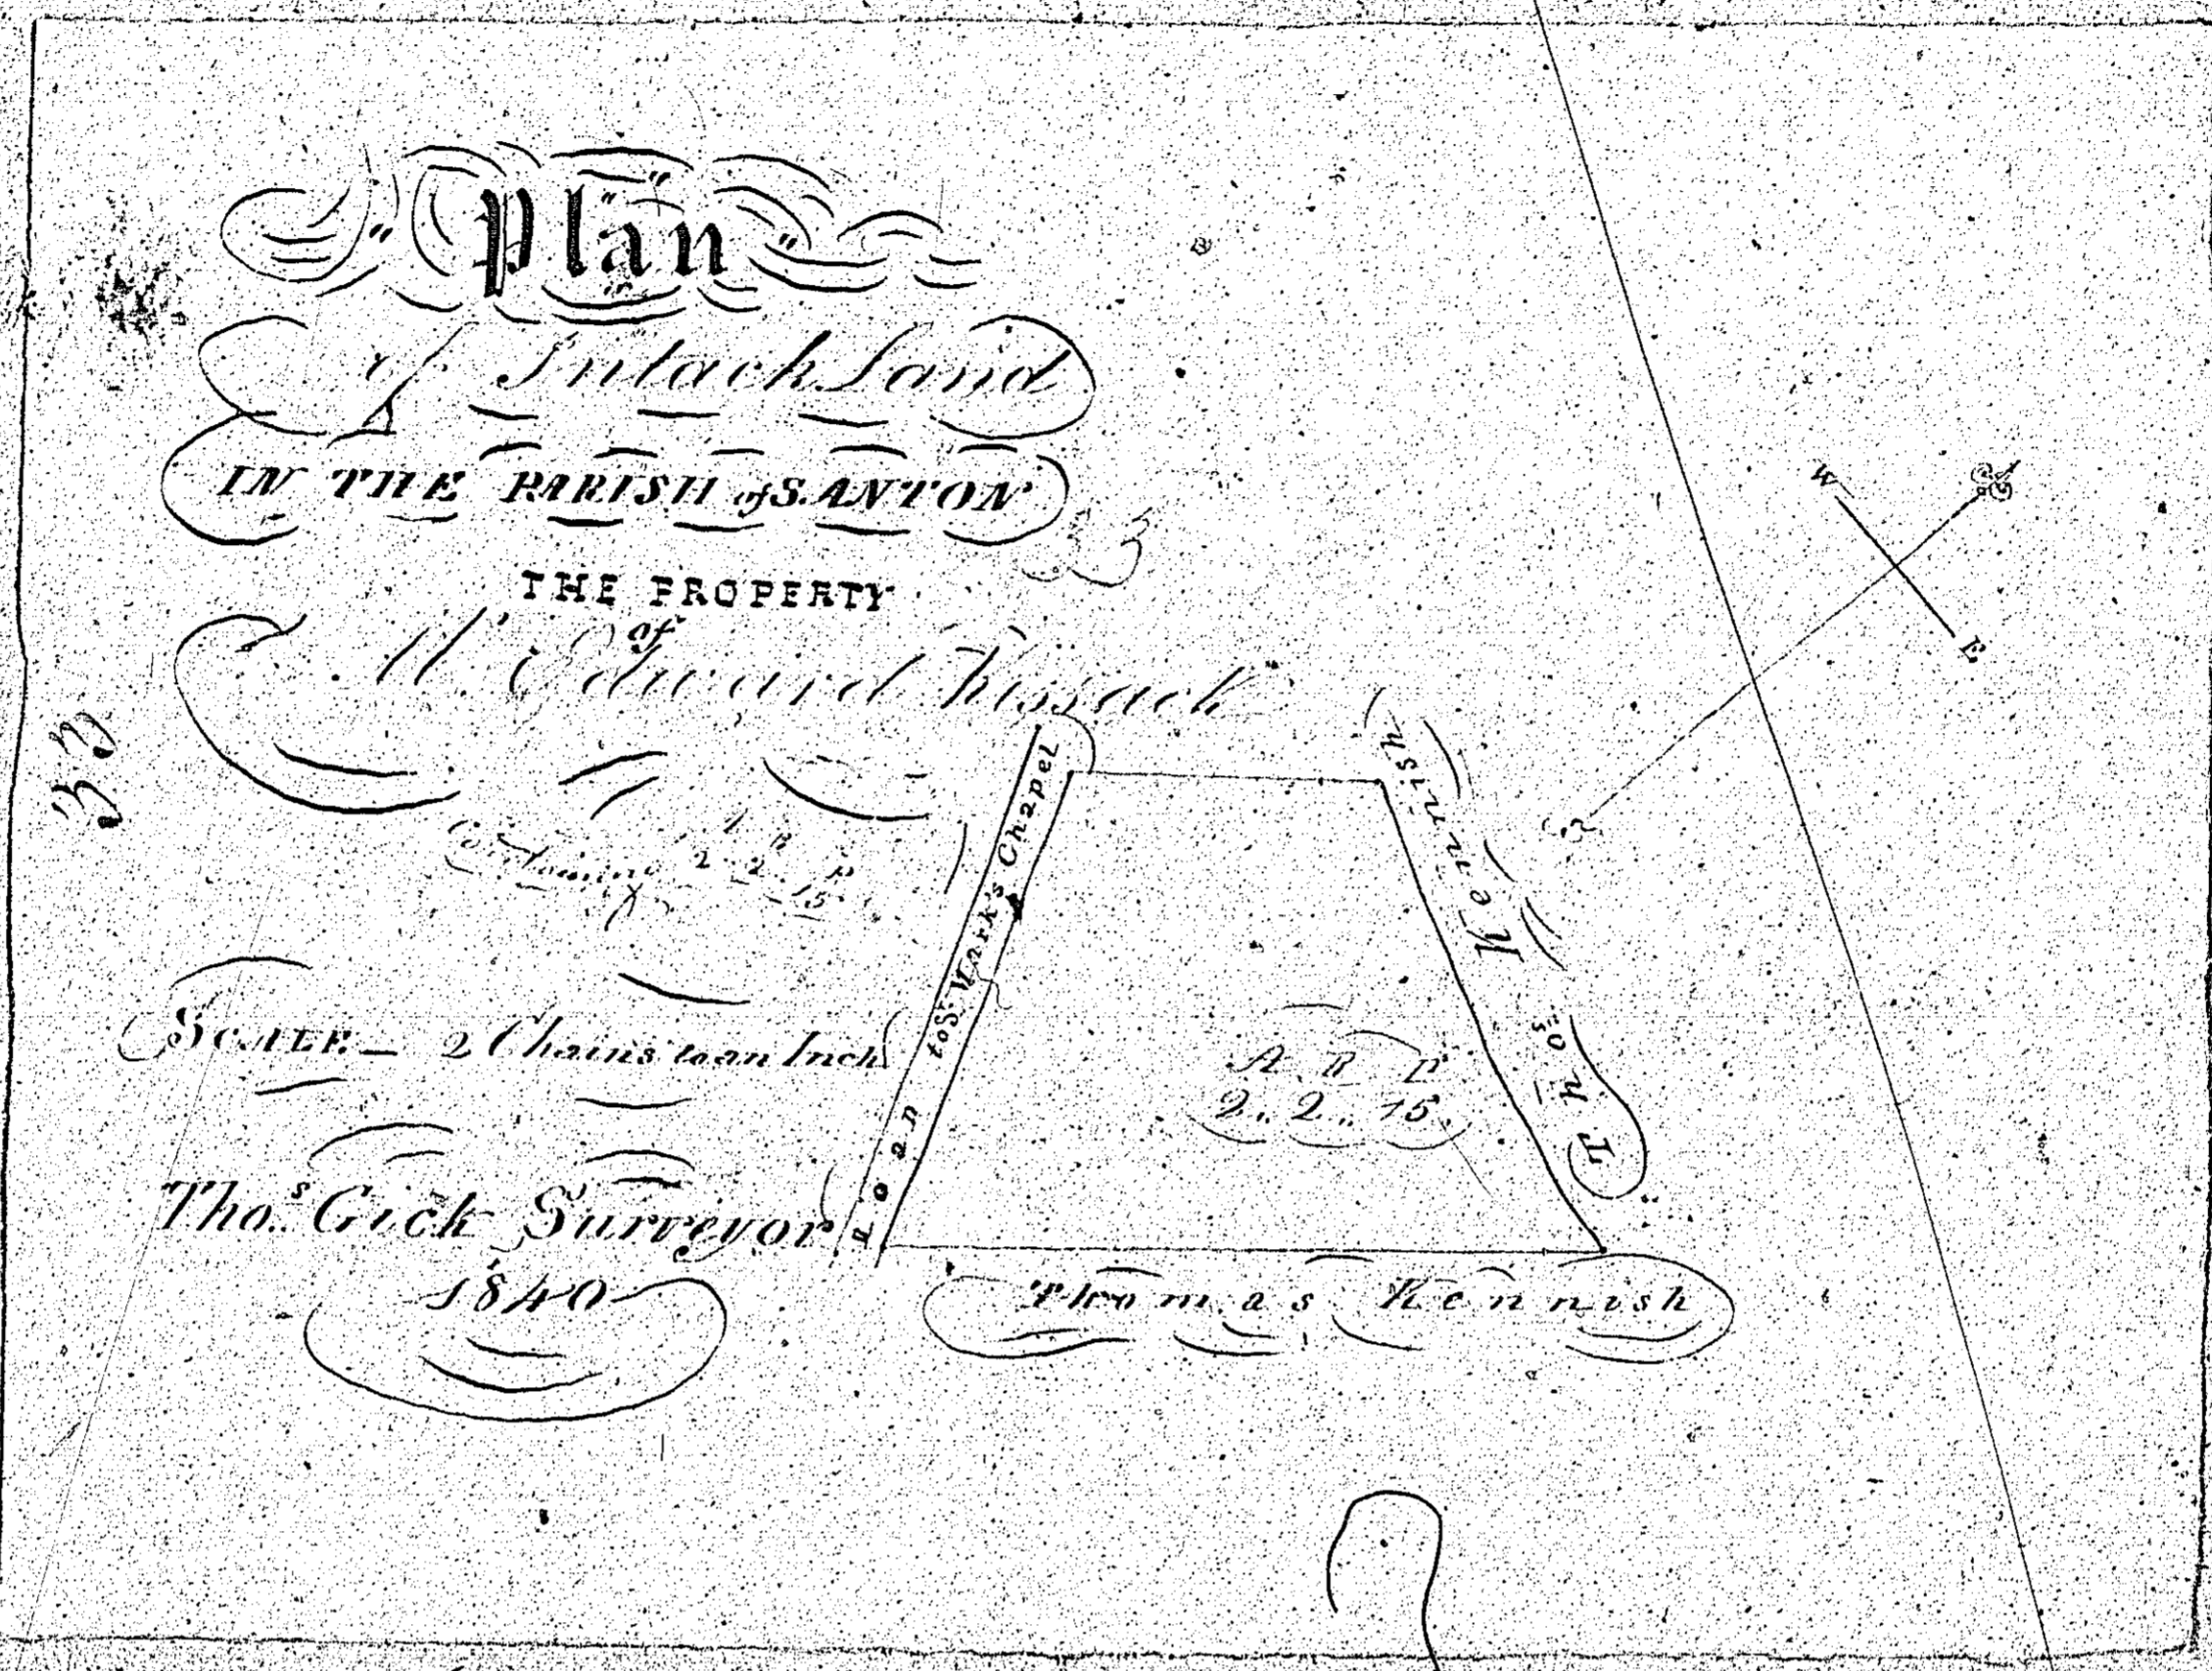 Plan
of Intack Land
IN THE PARISH of SANTON
THE PROPERTY
of
Mr. Edward Kissack
33
33
Containing
A R P
2 2 15
SCALE — 2 Chains to an Inch
Thos. Gick Surveyor
1840
Road to St. Mark's Chapel
A R P
2.. 2.. 15.
Thos. Kennish
Thomas Kennish
W
E